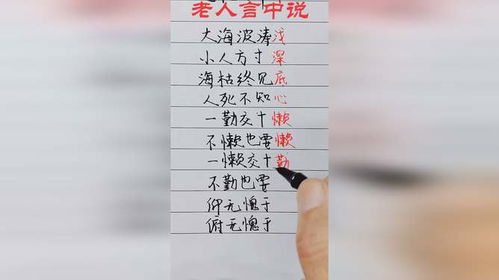 老人言中说
大海波涛浅
小人方寸深
海枯终见底
人死不知心
一勤交十懒
不懒也要懒
一懒交十勤
不勤也要
仰无愧于
俯无愧于